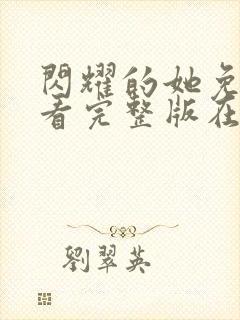 閃耀的她免
看完整版在
劉翠英